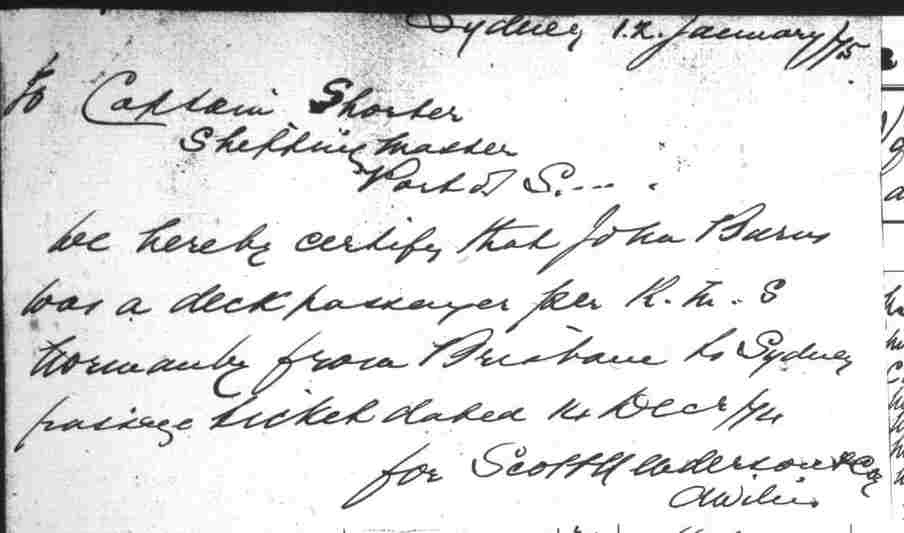 Sydney 12. January/75
To Captain Shorter
Shipping Master
Port of S....
We hereby certify that John Burns
was a deck passenger per R. M. S
Normanby from Brisbane to Sydney
passage ticket dated 14 Decr/74
for Scott Henderson & Co